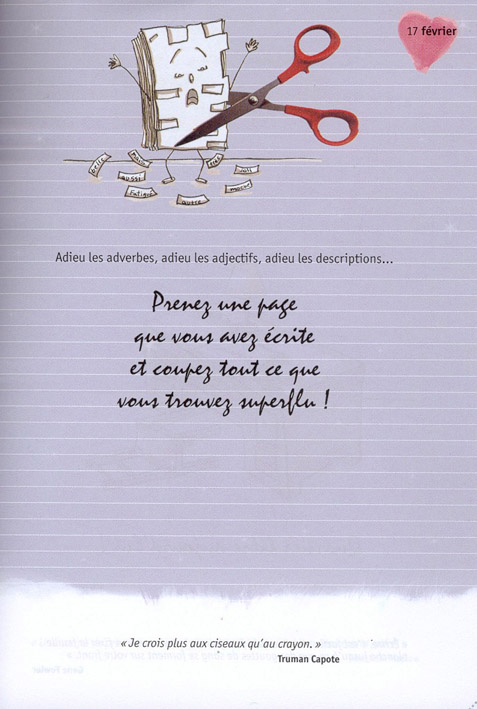 17 février
belle
aussi
Fatigué
autre
Adieu les adverbes, adieu les adjectifs, adieu les descriptions...
Prenez une page
que vous avez écrite
et coupez tout ce que
vous trouvez superflu !
« Je crois plus aux ciseaux qu'au crayon. »
Truman Capote